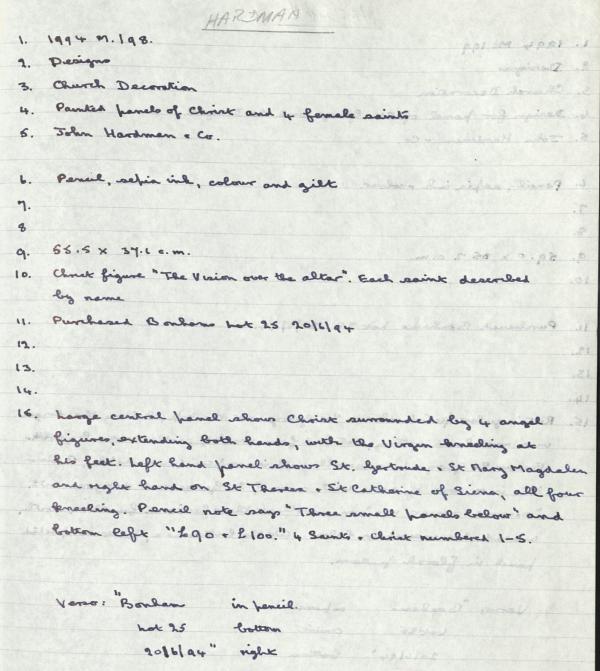 HARDMAN
1. 1994 M.198.
2. Designs
3. Church Decoration
4. Painted panels of Christ and 4 female saints
5. John Hardman & Co.
6. Pencil, sepia ink, colour and gilt
7.
8
9. 55.5 x 37.1 c.m.
10. Christ figure "The Vision over the altar". Each saint described
by name
11. Purchased Bonhams Lot 25 20/6/94
12.
13.
14.
15. Large central panel shows Christ surrounded by 4 angel
figures, extending both hands, with the Virgin kneeling at
his feet. Left hand panel shows St. Gertrude & St Mary Magdalen
and right hand on St Theresa & St Catherine of Siena, all four
kneeling. Pencil note says "Three small panels below" and
bottom left "£90 & £100." 4 Saints & Christ numbered 1-5.
Verso: "Bonham in pencil
Lot 25 bottom
20/6/94" right